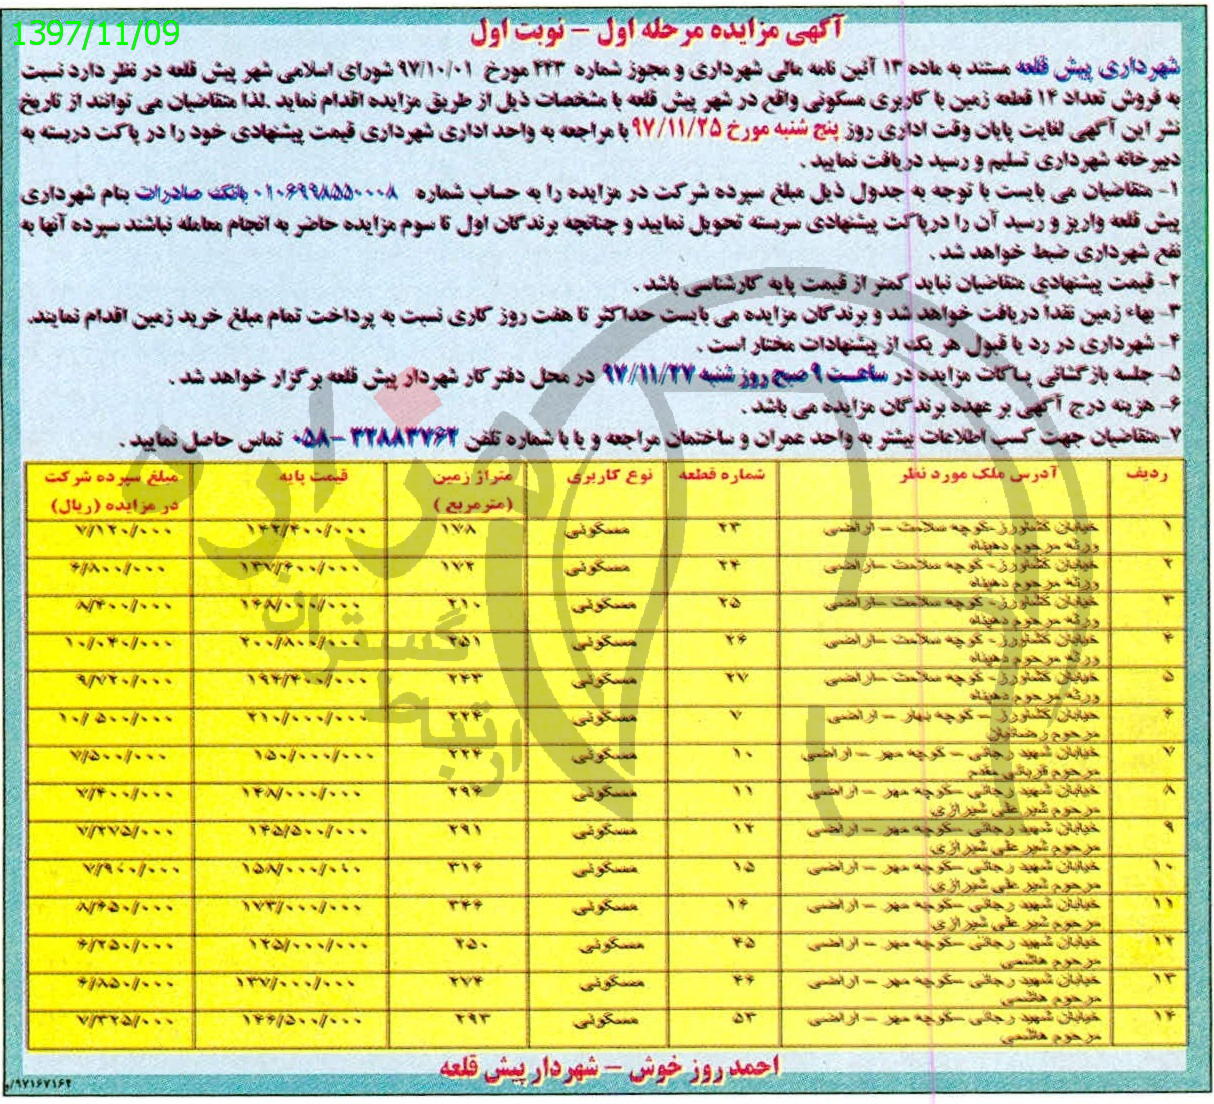 1397/11/09
آگهی مزایده مرحله اول – نوبت اول
شهرداری پیش قلعه مستند به ماده ۱۳ آئین نامه مالی شهرداری و مجوز شماره ۴۴۳ مورخ ۹۷/۱۰/۰۱ شورای اسلامی شهر پیش قلعه در نظر دارد نسبت
به فروش تعداد ۱۴ قطعه زمین با کاربری مسکونی واقع در شهر پیش قلعه با مشخصات ذیل از طریق مزایده اقدام نماید .لذا متقاضیان می توانند از تاریخ
نشر این آگهی لغایت پایان وقت اداری روز پنج شنبه مورخ ۹۷/۱۱/۲۵ با مراجعه به واحد اداری شهرداری قیمت پیشنهادی خود را در پاکت دربسته به
دبیرخانه شهرداری تسلیم و رسید دریافت نمایید .
۱- متقاضیان می بایست با توجه به جدول ذیل مبلغ سپرده شرکت در مزایده را به حساب شماره ۰۱۰۶۹۹۸۵۵۰۰۰۸ بانک صادرات بنام شهرداری
پیش قلعه واریز و رسید آن را درپاکت پیشنهادی سربسته تحویل نمایید و چنانچه برندگان اول تا سوم مزایده حاضر به انجام معامله نباشند سپرده آنها به
نفع شهرداری ضبط خواهد شد .
۲- قیمت پیشنهادی متقاضیان نباید کمتر از قیمت پایه کارشناسی باشد .
۳- بهاء زمین نقدا دریافت خواهد شد و برندگان مزایده می بایست حداکثر تا هفت روز کاری نسبت به پرداخت تمام مبلغ خرید زمین اقدام نمایند.
۴- شهرداری در رد یا قبول هر یک از پیشنهادات مختار است .
۵- جلسه بازگشائی پاکات مزایده در ساعت ۹ صبح روز شنبه ۹۷/۱۱/۲۷ در محل دفتر کار شهردار پیش قلعه برگزار خواهد شد .
۶- هزینه درج آگهی بر عهده برندگان مزایده می باشد .
۷-متقاضیان جهت کسب اطلاعات بیشتر به واحد عمران و ساختمان مراجعه و یا با شماره تلفن ۳۲۸۸۳۷۶۲ –۰۵۸ تماس حاصل نمایید .
ردیف آدرس ملک مورد نظر شماره قطعه نوع کاربری متراژ زمین (مترمربع ) قیمت پایه مبلغ سپرده شرکت در مزایده (ریال)
۱ خیابان کشاورز-کوچه سلامت – اراضی ورثه مرحوم دهپناه ۲۳ مسکونی ۱۷۸ ۱۴۲/۴۰۰/۰۰۰ ۷/۱۲۰/۰۰۰
۲ خیابان کشاورز- کوچه سلامت –اراضی ورثه مرحوم دهپناه ۲۴ مسکونی ۱۷۲ ۱۳۷/۶۰۰/۰۰۰ ۶/۸۰۰/۰۰۰
۳ خیابان کشاورز- کوچه سلامت –اراضی ورثه مرحوم دهپناه ۲۵ مسکونی ۲۱۰ ۱۶۸/۰۰۰/۰۰۰ ۸/۴۰۰/۰۰۰
۴ خیابان کشاورز- کوچه سلامت –اراضی ورثه مرحوم دهپناه ۲۶ مسکونی ۲۵۱ ۲۰۰/۸۰۰/۰۰۰ ۱۰/۰۴۰/۰۰۰
۵ خیابان کشاورز- کوچه سلامت –اراضی ورثه مرحوم دهپناه ۲۷ مسکونی ۲۴۳ ۱۹۴/۴۰۰/۰۰۰ ۹/۷۲۰/۰۰۰
۶ خیابان کشاورز – کوچه بهار – اراضی مرحوم رضائیان ۷ مسکونی ۲۲۴ ۲۱۰/۰۰۰/۰۰۰ ۱۰/۵۰۰/۰۰۰
۷ خیابان شهید رجائی – کوچه مهر – اراضی مرحوم قربانی مقدم ۱۰ مسکونی ۲۲۴ ۱۵۰/۰۰۰/۰۰۰ ۷/۵۰۰/۰۰۰
۸ خیابان شهید رجائی –کوچه مهر – اراضی مرحوم شیر علی شیرازی ۱۱ مسکونی ۲۹۶ ۱۴۸/۰۰۰/۰۰۰ ۷/۴۰۰/۰۰۰
۹ خیابان شهید رجائی –کوچه مهر – اراضی مرحوم شیر علی شیرازی ۱۲ مسکونی ۲۹۱ ۱۴۵/۵۰۰/۰۰۰ ۷/۲۷۵/۰۰۰
۱۰ خیابان شهید رجائی –کوچه مهر – اراضی مرحوم شیر علی شیرازی ۱۵ مسکونی ۳۱۶ ۱۵۸/۰۰۰/۰۰۰ ۷/۹۰۰/۰۰۰
۱۱ خیابان شهید رجائی –کوچه مهر – اراضی مرحوم شیر علی شیرازی ۱۶ مسکونی ۳۴۶ ۱۷۳/۰۰۰/۰۰۰ ۸/۶۵۰/۰۰۰
۱۲ خیابان شهید رجائی –کوچه مهر – اراضی مرحوم هاشمی ۴۵ مسکونی ۲۵۰ ۱۲۵/۰۰۰/۰۰۰ ۶/۲۵۰/۰۰۰
۱۳ خیابان شهید رجائی –کوچه مهر – اراضی مرحوم هاشمی ۴۶ مسکونی ۲۷۴ ۱۳۷/۰۰۰/۰۰۰ ۶/۸۵۰/۰۰۰
۱۴ خیابان شهید رجائی –کوچه مهر – اراضی مرحوم هاشمی ۵۳ مسکونی ۲۹۳ ۱۴۶/۵۰۰/۰۰۰ ۷/۳۲۵/۰۰۰
احمد روز خوش – شهردار پیش قلعه
۹۷۱۶۷۱۶۴/و
هزاره
گستران
ارتباط